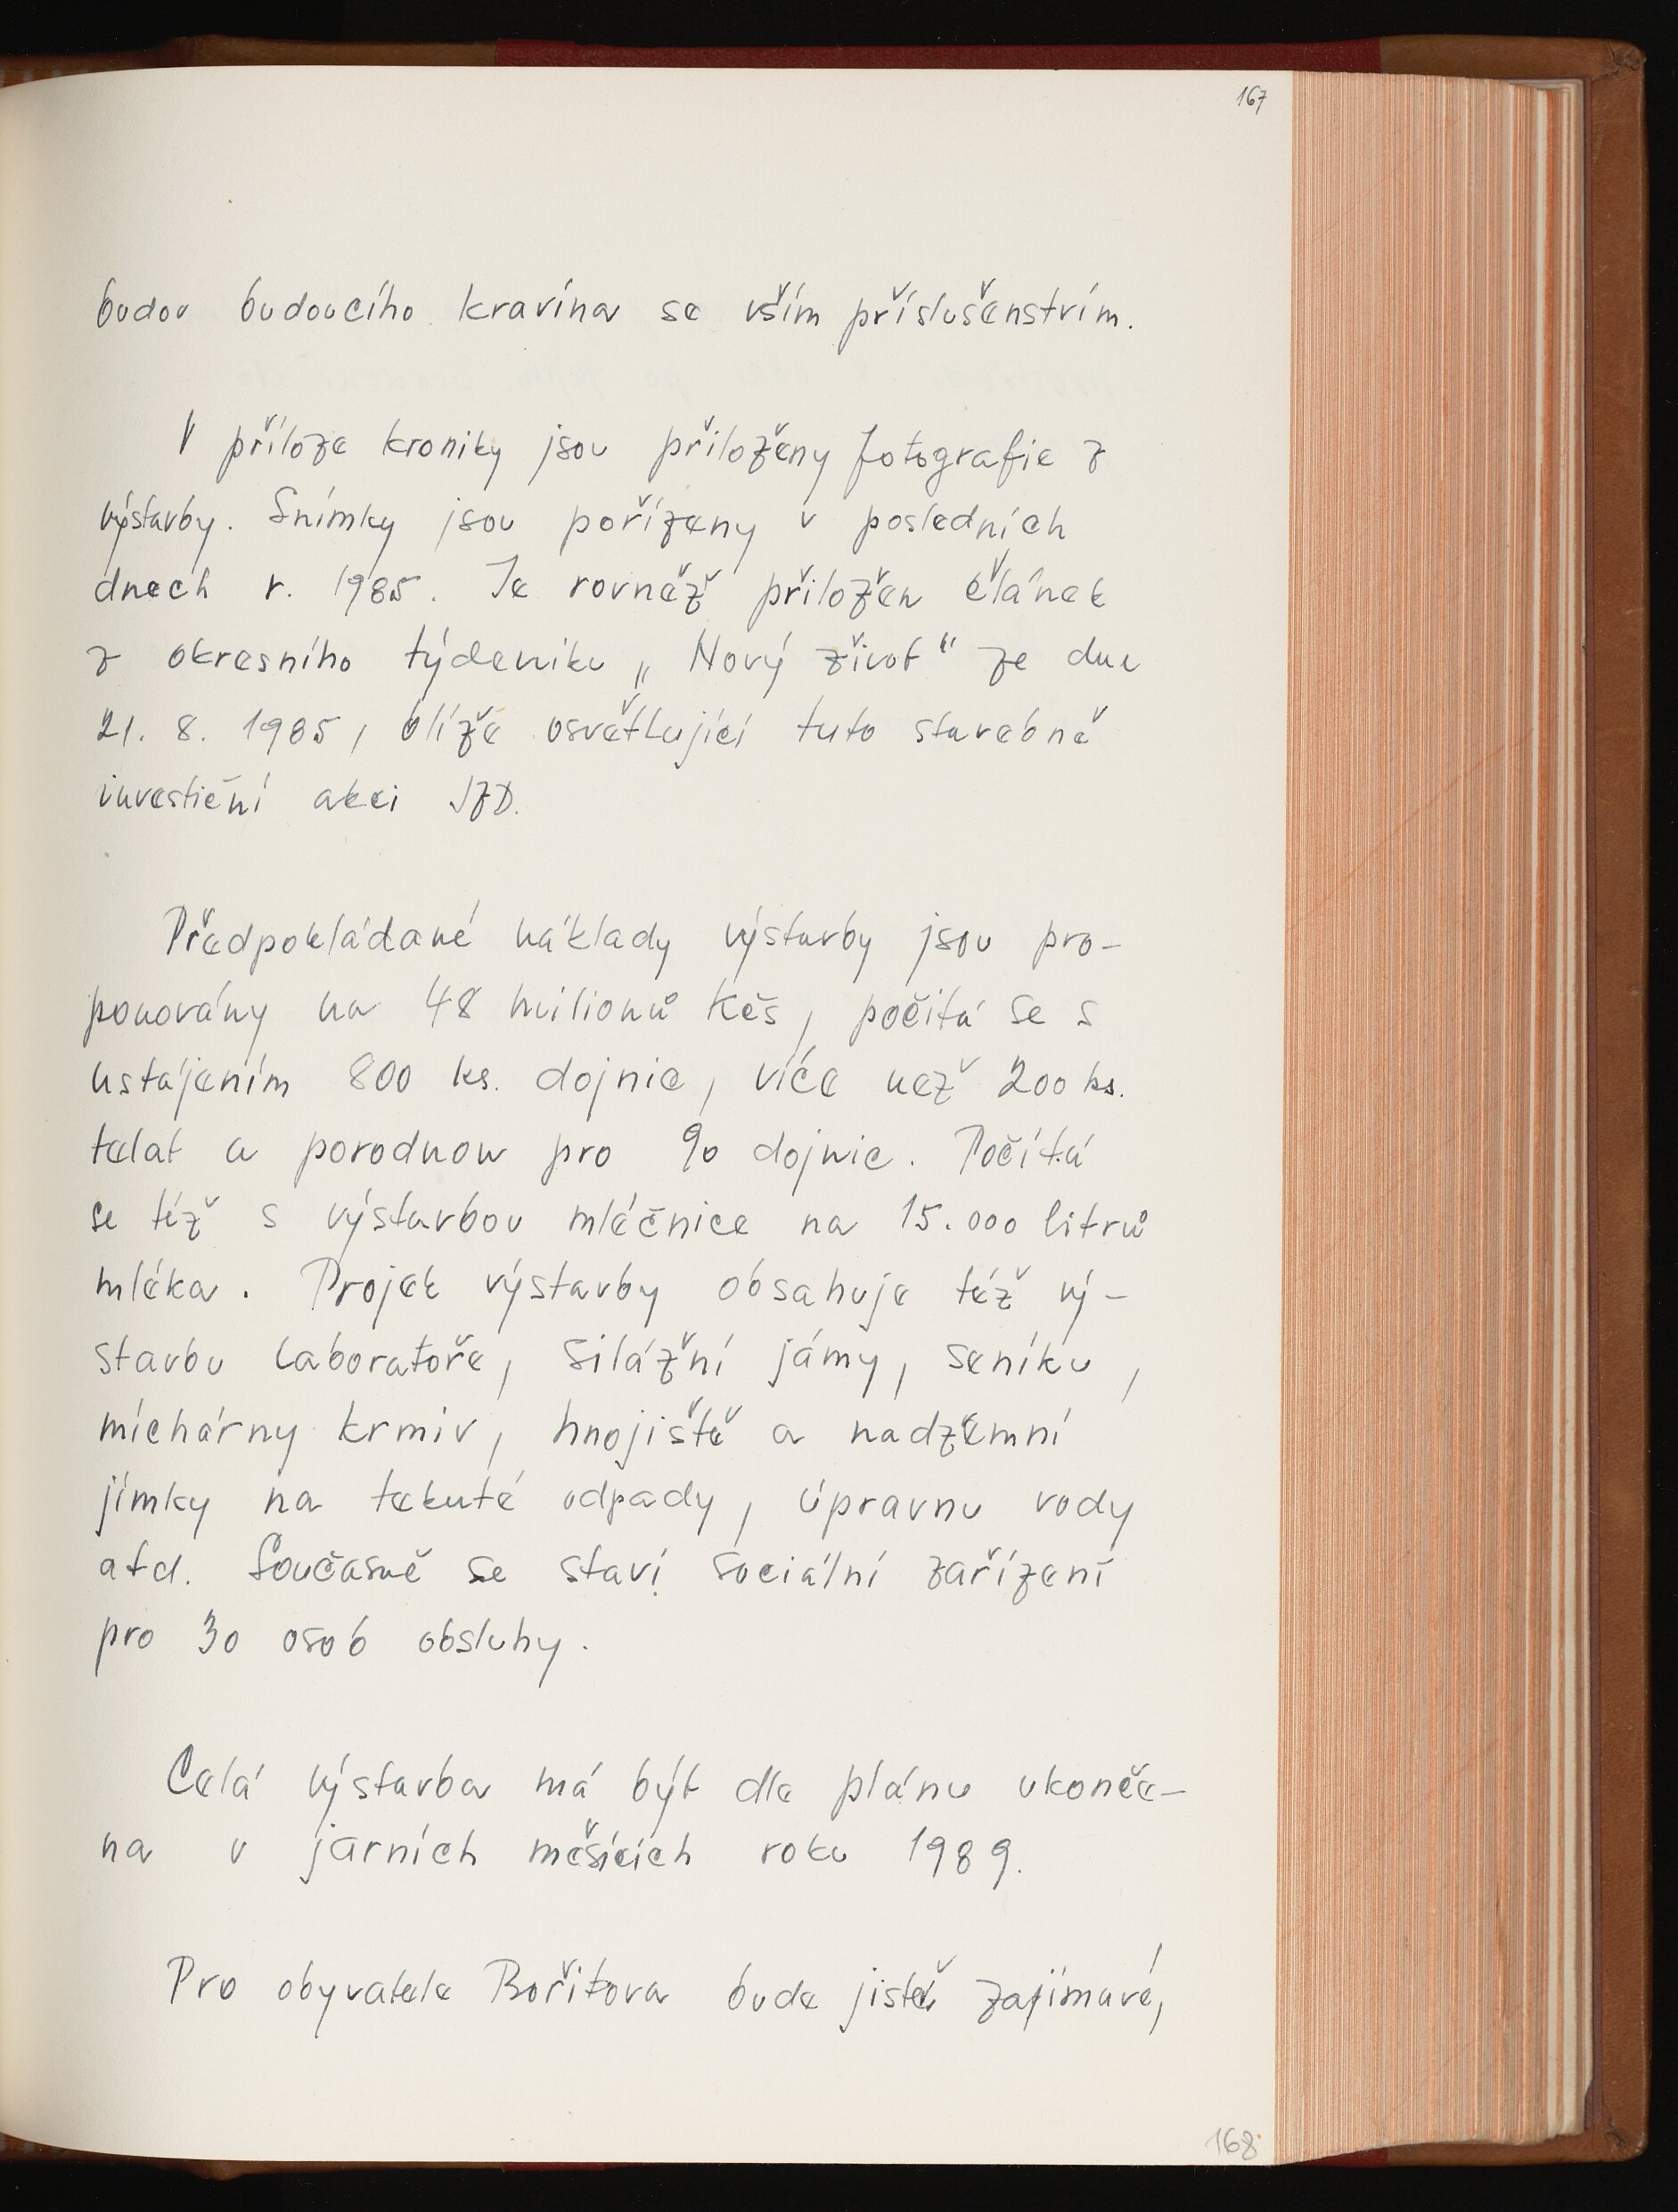 167
budov budoucího kravína se vším příslušenstvím.
V příloze kroniky jsou přiloženy fotografie z
výstavby. Snímky jsou pořízeny v posledních
dnech r. 1985. Je rovněž přiložen článek
z okresního týdeniku „Nový život" ze dne
21. 8. 1985, blíže osvětlující tuto stavebně
investiční akci JZD.
Předpokládané náklady výstavby jsou pro-
ponovány na 48 milionů Kčs, počítá se s
ustájením 800 ks. dojnic, více než 200 ks.
telat a porodnou pro 90 dojnic. Počítá
se též s výstavbou mléčnice na 15.000 litrů
mléka. Projek výstavby obsahuje též vý-
stavbu laboratoře, silážní jámy, seníku,
míchárny krmiv, hnojiště a nadzemní
jímky na tekuté odpady, úpravnu vody
atd. Současně se staví sociální zařízení
pro 30 osob obsluhy.
Celá výstavba má být dle plánu ukonče-
na v jarních měsících roku 1989.
Pro obyvatele Bořitova bude jistě zajímavé,
168